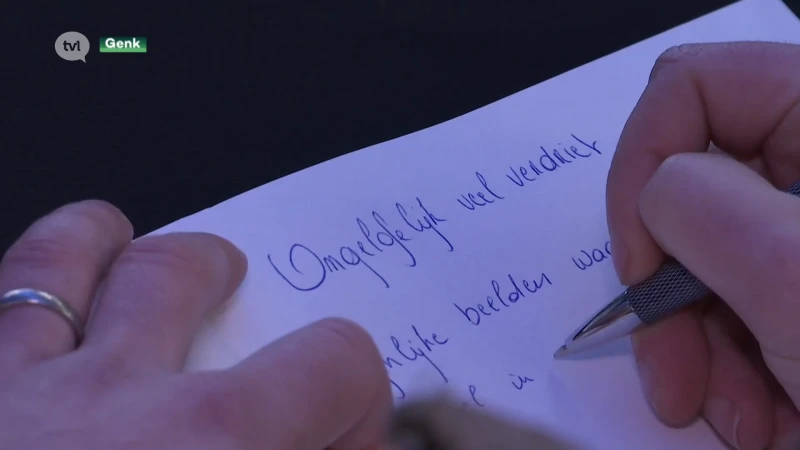 tvl
Genk
Ongelofelijk veel verdriet
beelden
in